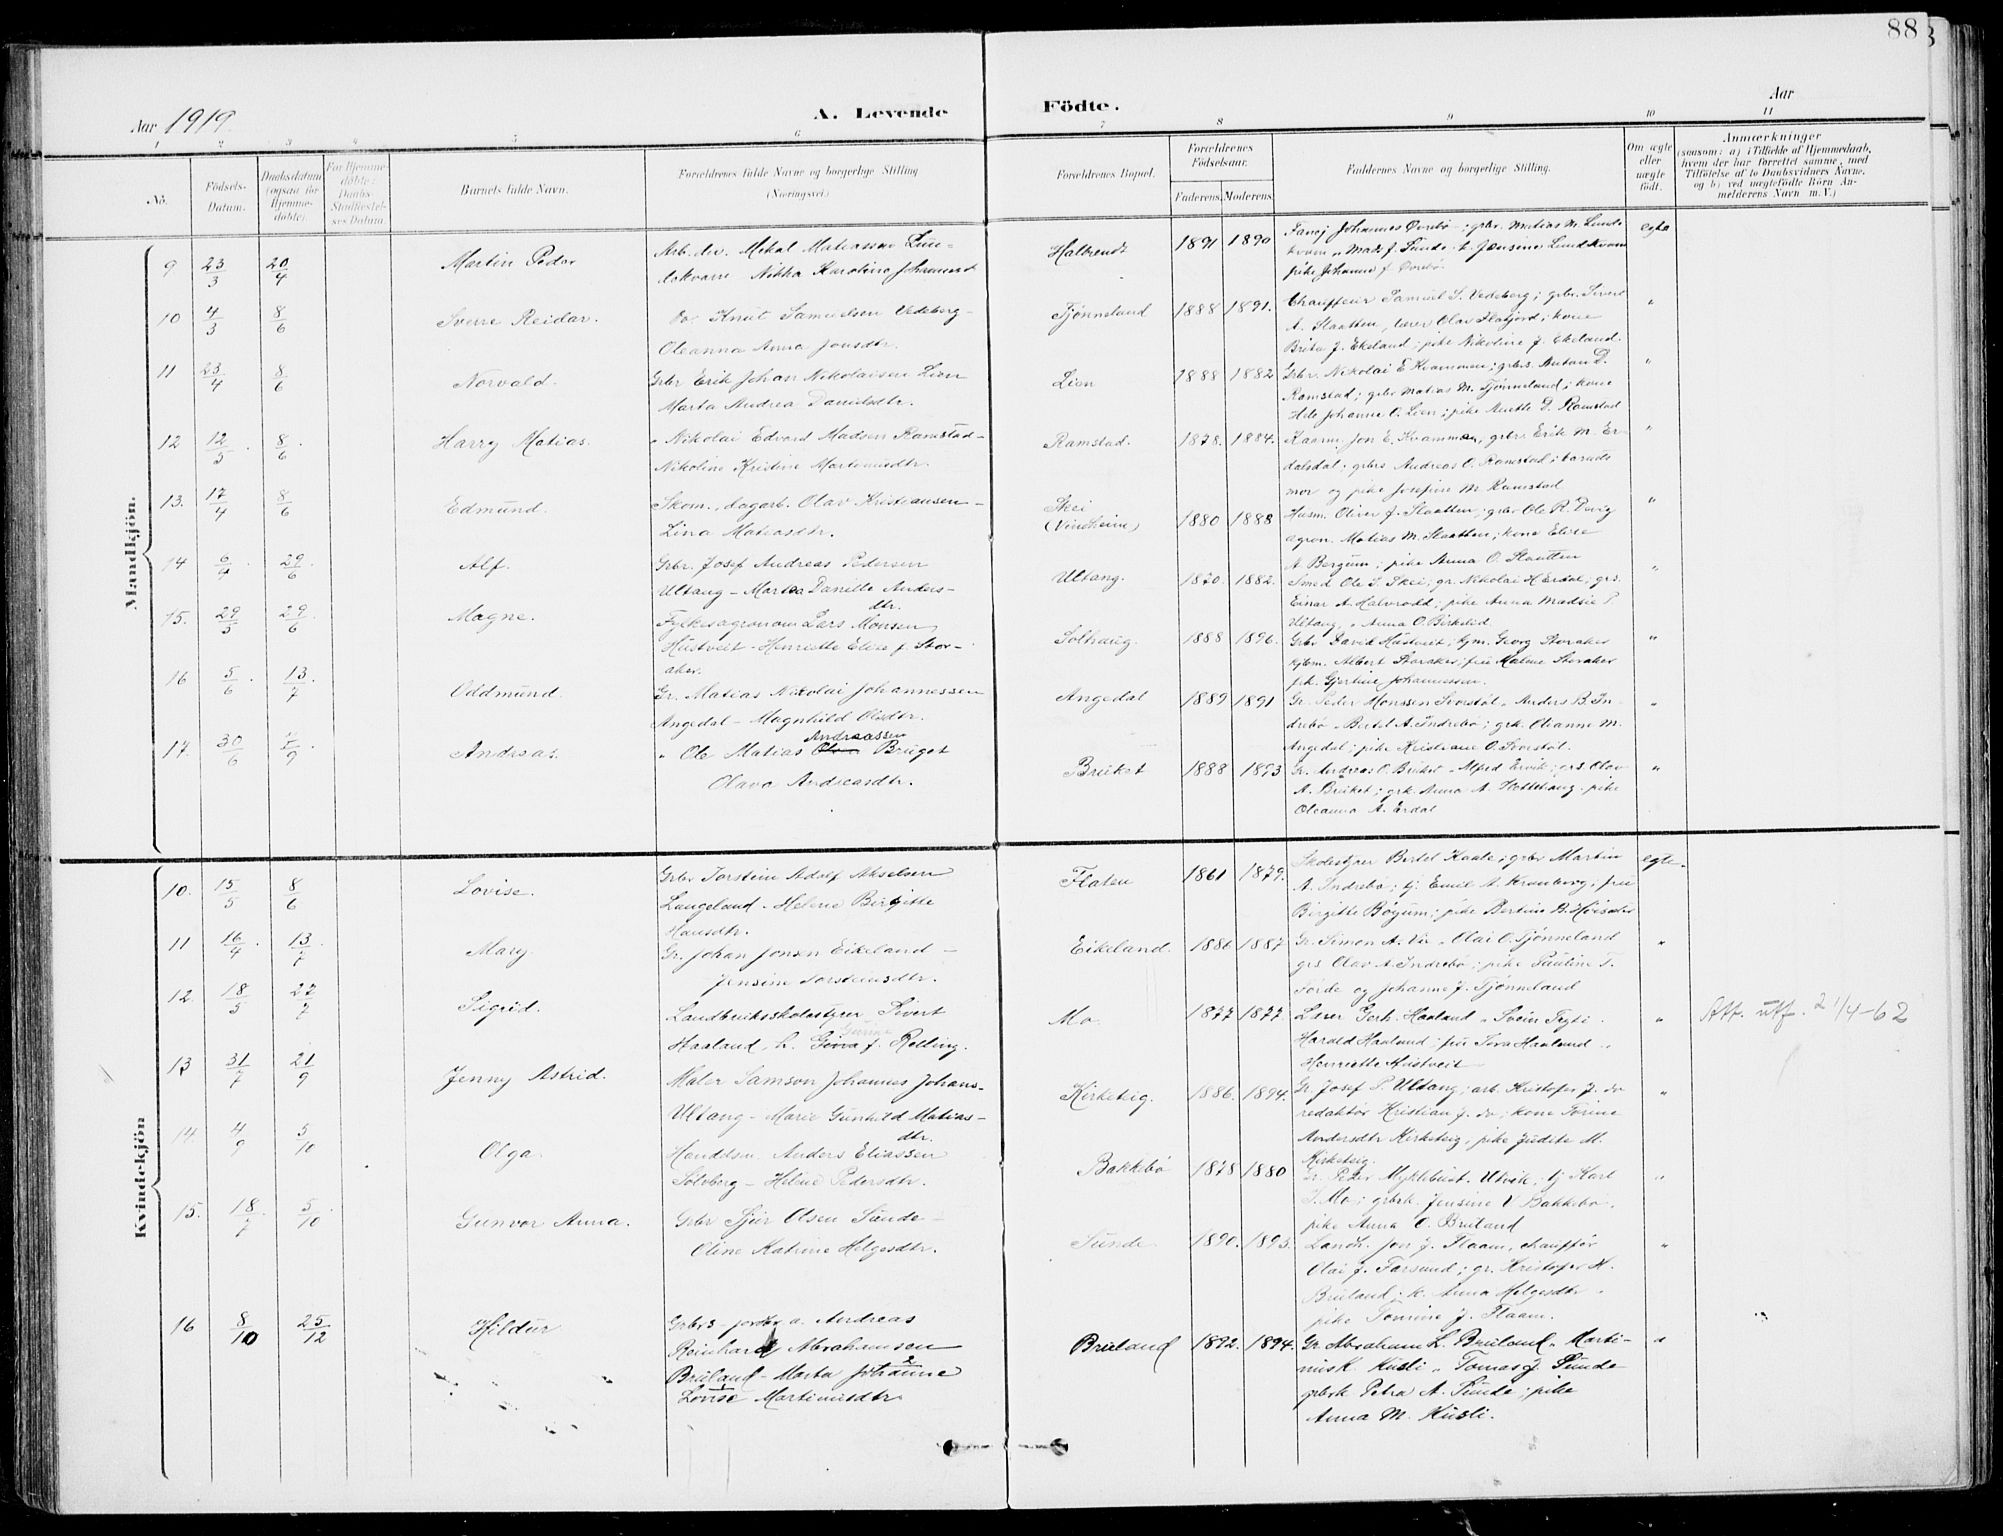 88
Aar 1919.
A. Levende Födte.
Aar
1 2 3 4 5 6 7 8 9 10 11
No.
Födsels-Datum.
Daabsdatum (ogsaa for Hjemme-döbte).
For Hjemme-döbte: Daabs-Stadfæstel-ses Datum.
Barnets fulde Navn.
Forældrenes fulde Navne og borgerlige Stilling (Næringsvei).
Forældrenes Bopæl.
Forældrenes Födselsaar.
Faderens. Moderens.
Faddernes Navne og borgerlige Stilling.
Om ægte eller uægte födt.
Anmærkninger
(saasom: a) i Tilfælde af Hjemmedaab, hvem der har forrettet samme, med Tilföielse af to Daabsvidners Navne, og b) ved uægtefödte Börn Anmelderens Navn m. V.)
Mandkjön.
9 23/3 20/4 Martin Peder
Mikal Matiassen
Karoline
1891 1890 egte
10 4/3 8/6 Sverre Reidar.
Do. Knut Samuelsen Vedeberg -
Oleanna Anna Jonsdtr.
Tjønneland 1888 1891.
Chauffeur Samuel S. Vedeberg; grbr. Sivert
A. Slaatten, lærer Olav Flatjord; kone
Brita J. Ekeland; pike Nikoline J. Ekeland.
11 23/4 8/6 Norvald.
Grbr Erik Johan Nikolaisen Lien
Marta Andrea Danielsdtr.
Lien 1888 1882
Grbr. Nikolai E Kvammen; grbrs. Anton D.
Ramstad; grbr Matias M. Tjønneland; kone
Johanne O. Lien; pike Anette D. Ramstad
12 12/5 8/6 Harry Matias.
" Nikolai Edvard Madsen Ramstad -
Nikoline Kristine Martinusdtr.
Ramstad. 1878. 1884.
Kaarm. Jon E. Kvammen, grbr. Erik M. Er-
dalsdal. grbrs Andreas O. Ramstad; barnets
mor og pike Josefine M Ramstad
13. 17/4 8/6 Edmund.
Skom., dagarb. Olav Kristiansen -
Lina Matiasdtr.
Skei
(Vindheim) 1880 1888
Husm. Oliver J. Slaatten; grbr Ole R.
agron. Matias M. Slaatten; kone Elise
A Bergum; pike Anna O. Slaatten
14 6/4 29/6 Alf.
Grbr. Josef Andreas Pedersen
Ultang - Marta Danille Anders-
dtr.
Ultang. 1870. 1882.
Smed Ole S. Skei; gr. Nikolai H Erdal, grs.
Einar A. Halvrodd; pike Anna Madsie P.
Ultang, " Anna O. Birkelid.
15. 29/5 29/6 Magne.
Fylkesagronom Lars Monsen
Hustveit - Henriette Elise f. Stor-
aker.
Solhaug. 1888 1896.
Grbr David Hustveit; kjm. Georg Storaker
kjøm. Albert Storaker; frue Malene Storaker
frk. Gjertine Johannessen.
16 5/6 13/7 Oddmund.
Gr. Matias Nikolai Johannessen
Angedal - Magnhild Olsdtr.
Angedal 1889 1891
Gr. Peder Monssen Svorstøl " Anders B. In-
drebø " Bertel A. Indrebø; grk. Oleanne M.
Angedal; pike Kristiane O. Svorstøl.
17. 30/6 /9 Andreas.
Andreassen
" Ole Matias Bruget
Olava Andreasdtr.
Bruket 1888 1893
Gr. Andreas O. Bruket " Alfred Ervik; grs. Olav
A. Bruket; grk. Anna A. pike
Oleanna A. Erdal
Kvindekjön
10. 15/5 8/6 Lovise.
Grbr Torstein Adolf Akselsen
Langeland - Helene Birgitte
Hansdtr.
Flaten 1861 1879. egte.
Skolestyrer Bertel Kaale; grbr Martin
A. Indrebø; kj. Emil A. Kronberg; frue
Birgitte Bøyum; pike Bertine B. Høisæter
11 16/4 13/7 Mary.
Gr. Johan Jonsen Eikeland -
Jensine Torsteinsdtr.
Eikeland. 1886 1887
Gr. Simon A. Vie " Olai O. Tjønneland
grs Olav A. Indrebø; pike Pauline T.
Førde og Johanne J. Tjønneland
12. 18/5 27/7 Sigrid.
Landbruksskolestyrer Sivert
Haaland, h. f. Rolling.
Mo. 1877 1877.
Lærer Gerh. Haaland " Svein
Harald Haaland; frue Tora Haaland "
Henriette Hustveit
Att. utf. 21/4-62
13 31/7 21/9 Jenny Astrid.
Maler Samson Johannes Johans-
Ultang - Marie Gunhild Matias-
dtr.
Kirketeig. 1886. 1894.
Gr. Josef P. Ultang; arb. Kristofer J. do
redaktør Kristian J. do; kone Torine
Andersdtr Kirketeig, pike Judite M.
Kirketeig.
14 4/9 5/10 Olga
Handelsm. Anders Eliassen
Solberg - Helene Pedersdtr.
Bakkebø 1878 1880
Gr. Peder Myklebust. Utvik; kj Karl
S. Mo; grbrk. Jensine V. Bakkebø.
pike Anna O. Bruland
15. 18/7 5/10 Gunvor Anna.
Grbr Sjur Olsen Sunde -
Oline Katrine Helgesdtr.
Sunde 1890. 1893.
Landh. Jon J. Flaam, chauffør
Olai J. Farsund; gr. Kristofer H.
Bruland; k. Anna Helgesdtr "
pike Tomine J. Flaam.
16 8/10 25/12 Hildur
Grbrs - a. Andreas
Reinhard Abrahamsen
Bruland - Marta Johanne
Lovise Martinusdtr
Bruland 1892. 1894.
Gr. Abraham L. Bruland " Marti-
nus K. Kusli " Tomas J. Sunde
grbrk Petra A. Sunde; pike
Anna M. Kusli.